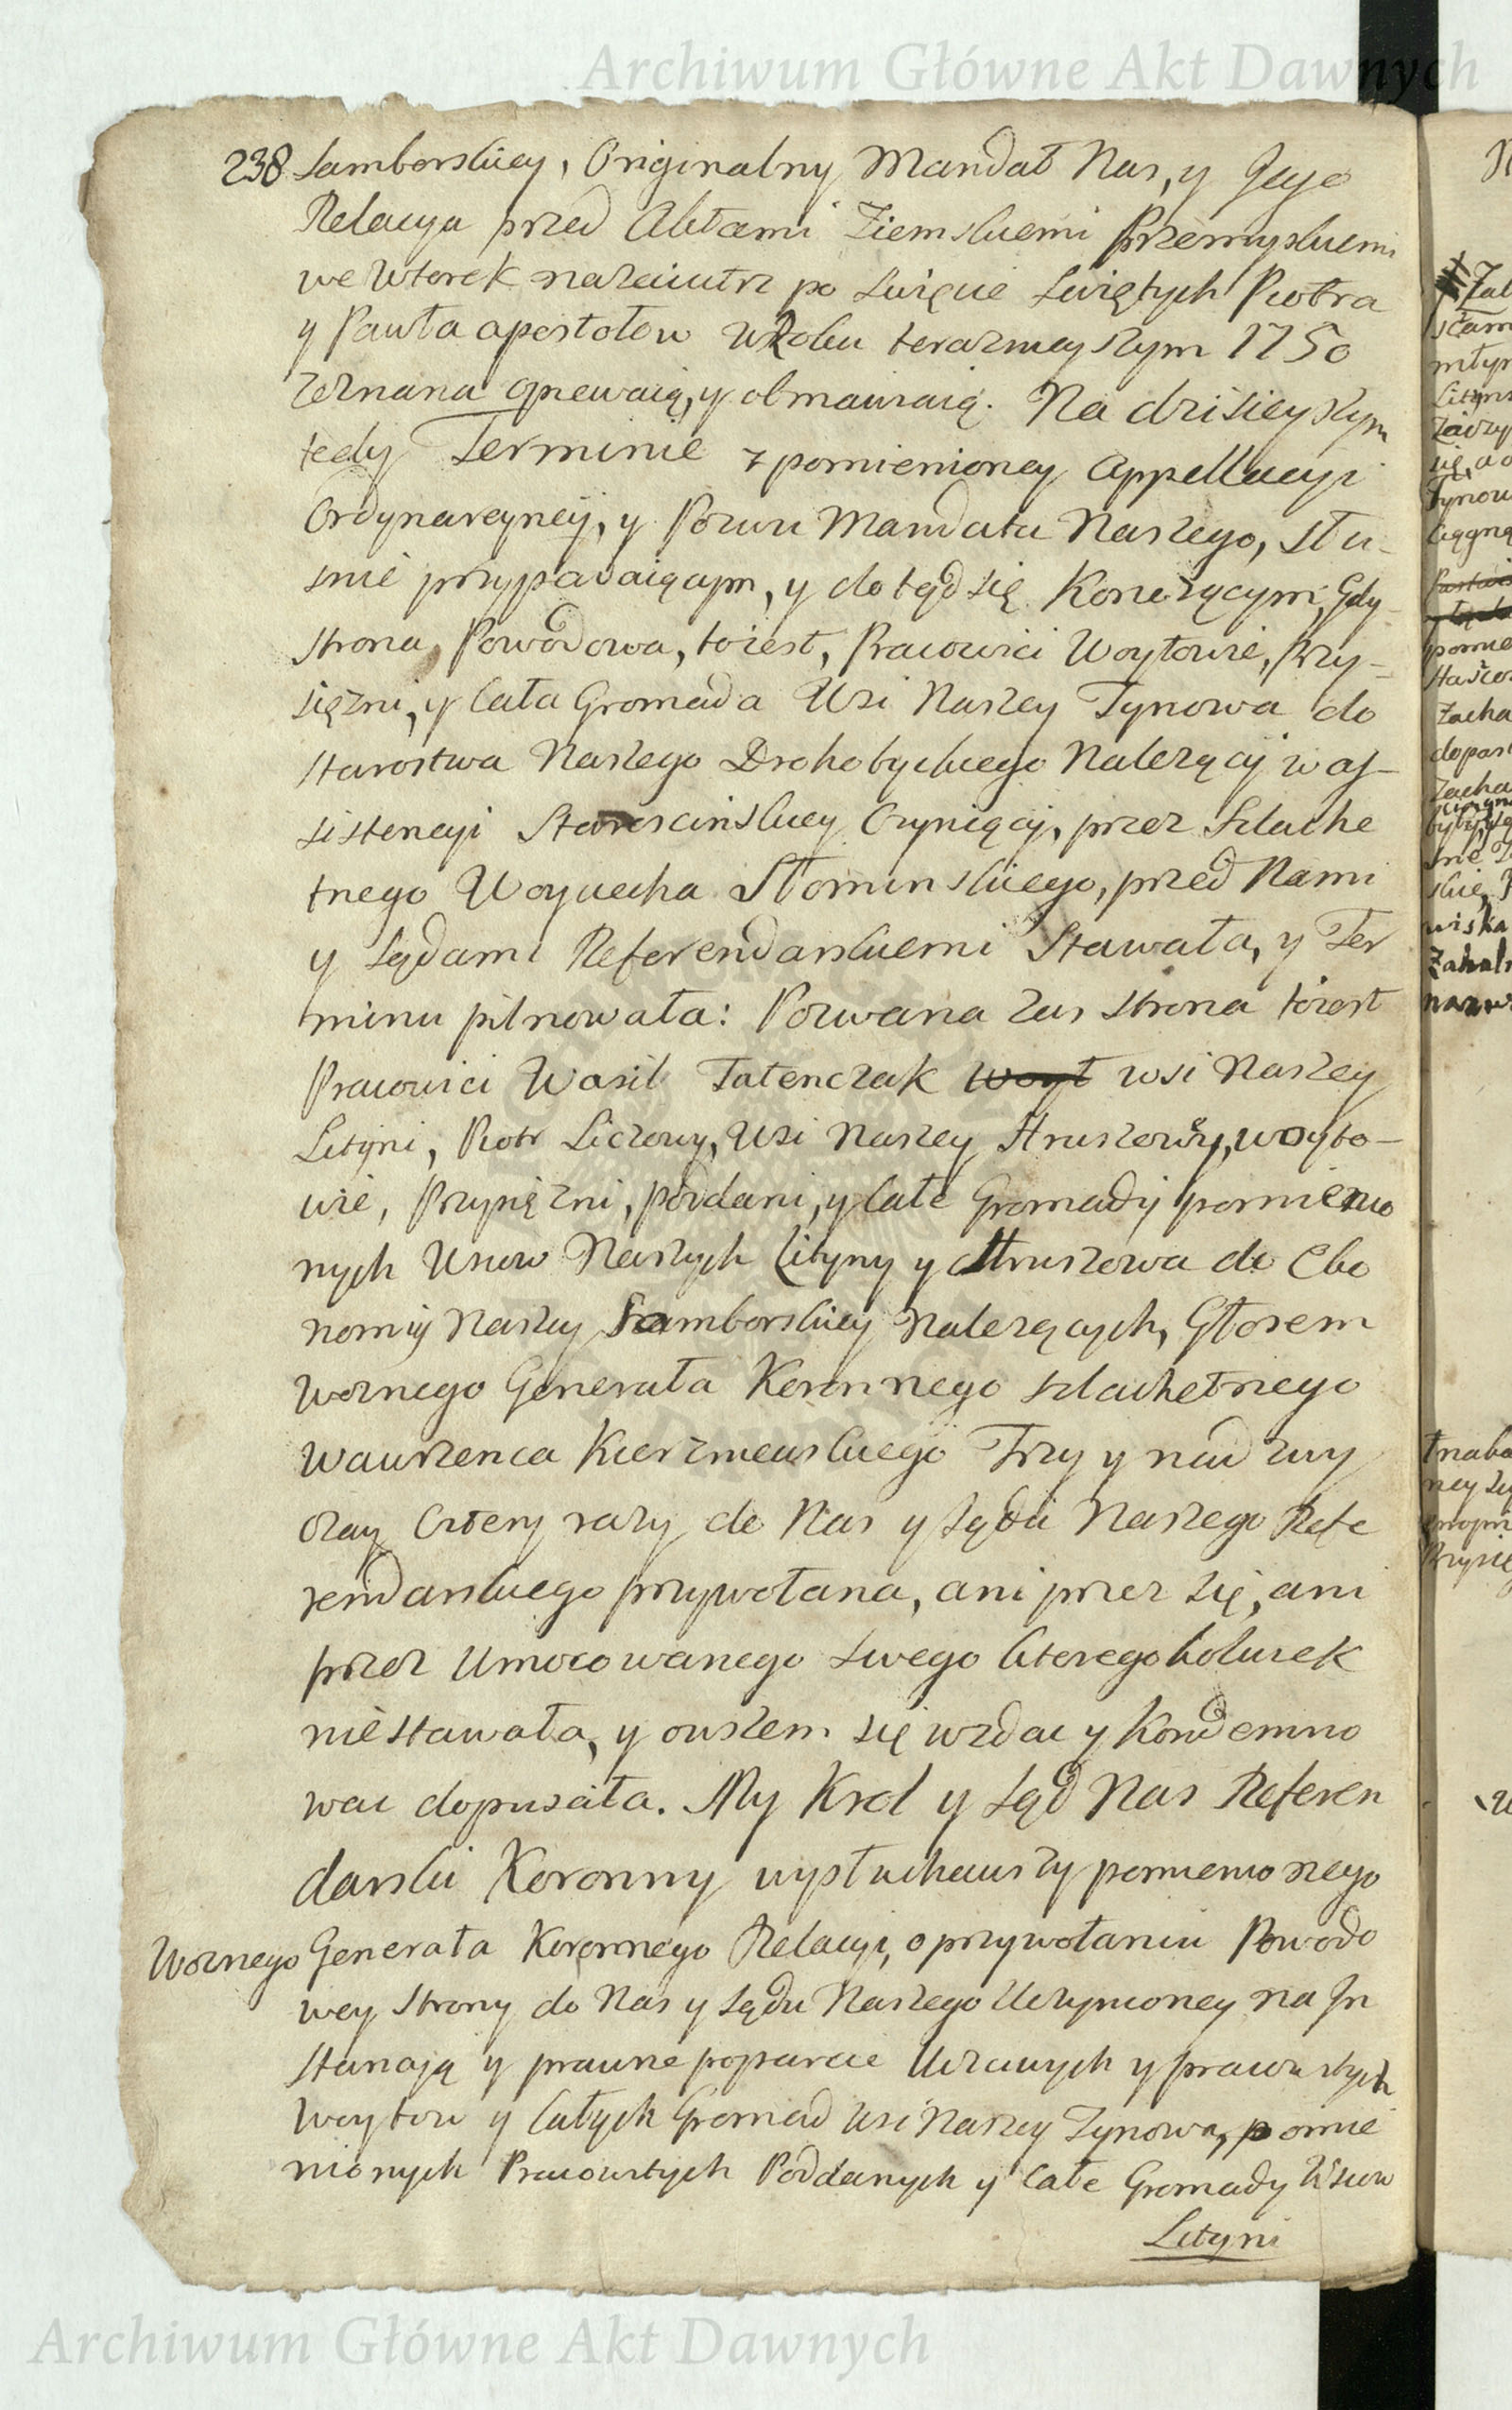 Archiwum Główne Akt Dawnych
238 Samborskiey, Originalny Mandat Nas, y Jego
Relacya przed Aktami Ziemskiemi Przemyskiemi
we Wtorek nazaiutrz po Swięcie Swiętych Piotra
y Pawła apostołow w Roku teraznieyszym 1750
zeznana opiewaią, y obmawiaią. Na dzisieyszym
tedy Terminie z pomienioney Appellacyi
Ordynaryiney, y Pozwu Mandatu Naszego, słu-
snie przypadaiącym, y dotąd się Kończącym, Gdy
strona Powodowa, toiest, Pracowici Woytowie, Przy-
siężni, y Cała Gromada Wsi Naszey Tynowa do
Starostwa Naszego Drohobyckiego Nalezący w as-
sistencyi Staroscinskiey Czyniący, przez Szlache
tnego Woyciecha Słominskiego, przed Nami
y Sądami Referendarskiemi Stawała, y Ter
minu pilnowała: Pozwana zas strona toiest
Pracowici Wasil Tatenczak woyt wsi Naszey
Lityni, Piotr Liczowy, Wsi Naszey Hruszowy, woyto-
wie, Przysiężni, poddani, y Całe Gromady pomienio
nych Wsiow Naszych Lityny y Hruszowa do Eko
nomij Naszey Samborskiey Nalezących, Głosem
Woznego Generała Koronnego szlachetnego
Wawrzenca Kierzniewskiego Trzy y nad zwy
czay Cztery razy do Nas y Sądu Naszego Refe
rendarskiego przywołana, ani przez się, ani
przez Umocowanego swego Ktoregokolwiek
nie stawała, y owszem się wzdac y Kondemno
wac dopusciła. My Krol y Sąd Nas Referen
darski Koronny wysłuchawszy pomienionego
Woznego Generała Koronnego Relacyi, o przywołaniu Powodo
wey Strony do Nas y Sądu Naszego Uczynioney na In
stancyą y prawne poparcie Uczciwych y pracowitych
Woytow y Całych Gromad Wsi Naszey Tynowa, pomie
nionych Pracowitych Poddanych y Całe Gromady Wsiow
Lityni
Archiwum Główne Akt Dawnych